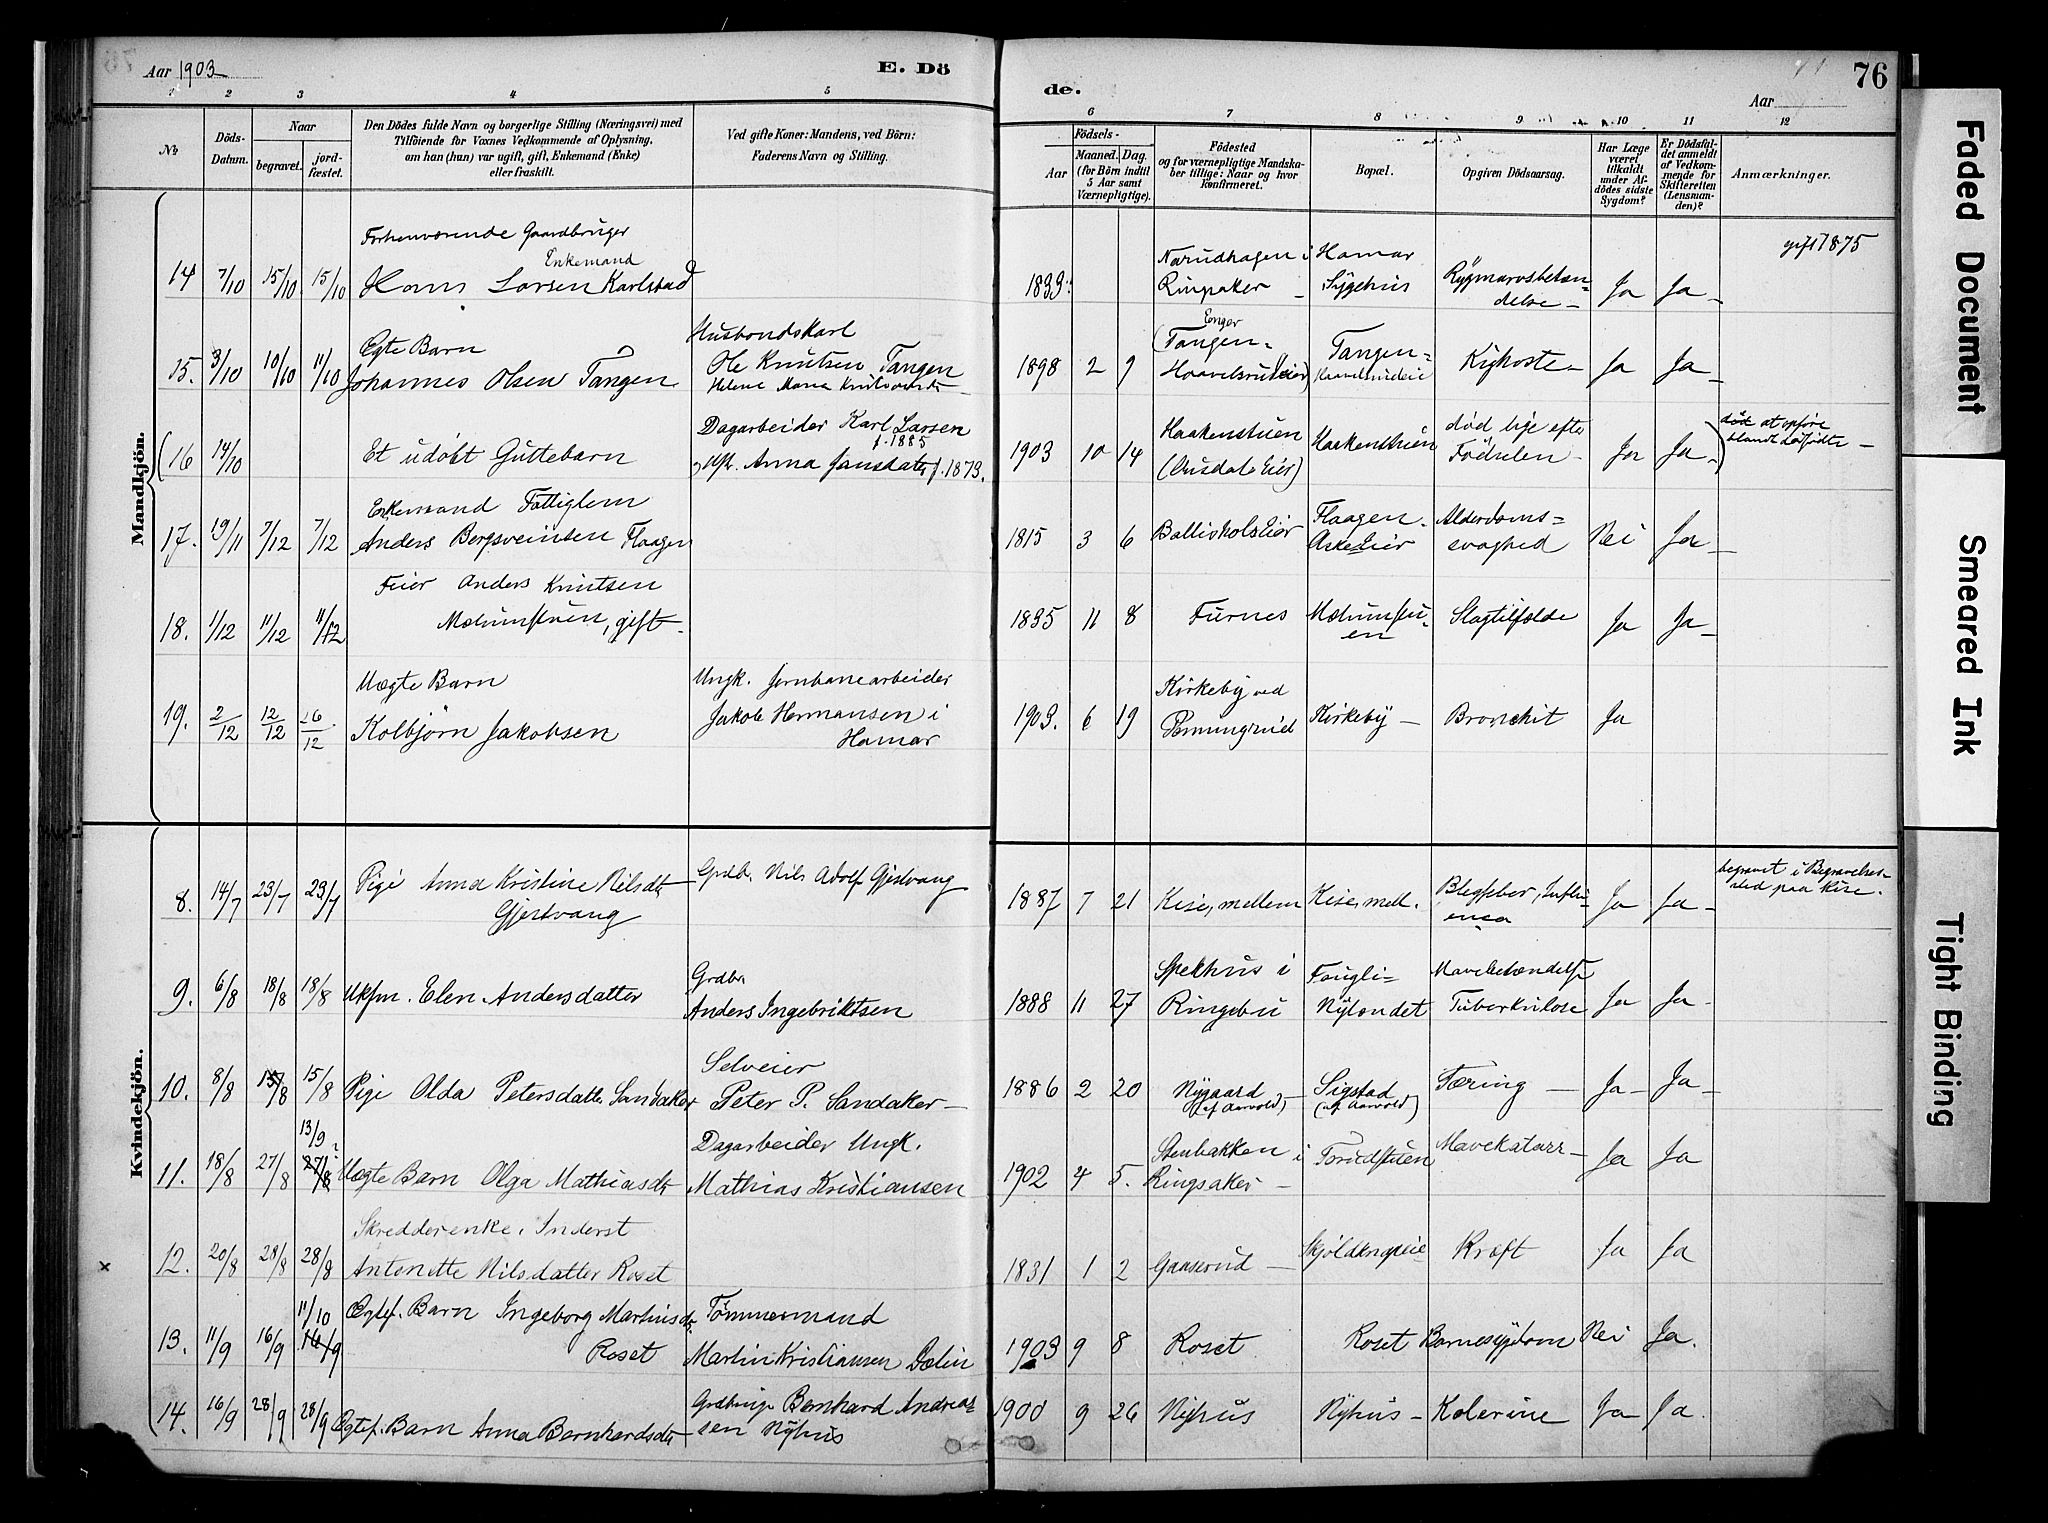 Aar 1903
E. Dö
de.
Aar
76
1 2 3 4 5 6 7 8 9 10 11 12
No
Döds-
Datum.
Naar
begravet.
jord-
fæstet.
Den Dödes fulde Navn og borgerlige Stilling (Næringsvei) med
Tilföiende for Voxnes Vedkommende af Oplysning,
om han (hun) var ugift, gift, Enkemand (Enke)
eller fraskilt.
Ved gifte Koner: Mandens, ved Börn:
Faderens Navn og Stilling.
Födsels-
Aar
Maaned. Dag.
(for Börn indtil
5 Aar samt
Værnepligtige).
Födested
og for værnepligtige Mandska-
ber tillige: Naar og hvor
konfirmeret.
Bopæl.
Opgiven Dödsaarsag.
Har Læge
været
tilkaldt
under Af-
dödes sidste
Sygdom?
Er Dödsfal-
det anmeldt
af Vedkom-
mende for
Skifteretten
(Lensman-
den)?
Anmærkninger.
Mandkjön.
Forhenværende Gaardbruger
Enkemand
14 7/10 15/10 15/10 Hans Larsen Karlstad
1833
Narudhagen i
Ringsaker
Hamar
Sygehus
Rygmarvsbetæn=
delse
Ja Ja
gift 1875
Egte Barn
15. 3/10 10/10 11/10 Johannes Olsen Tangen
Husbondskarl
Ole Knutsen Tangen
1898 2 9
(Enger
Tangen=
Haavelsrudeier)
Tangen=
Kigkoste
Ja Ja
(16 14/10 Et udöbt Guttebarn
Dagarbeider Karl Larsen
f. 1885
Anna Jansdatter f. 1873.
1903 10 14
Haakenstuen
Haakenstuen
död lige efter
Födselen
Ja Ja
at opføre
blandt dødfødte
17. 19/11 7/12 7/12
Enkemand Fattiglem
Anders Bergsveinsen Flaagen
1815 3 6
Flaagen
Alderdoms=
svaghed
Nei Ja
18. 1/12 11/12 11/12
Feier Anders Knutsen
Mælumstuen, gift
1835 11 8 Furnes
Mælumstu-
en
Slagtilfælde
Ja Ja
19. 2/12 12/12 16/12
Uægte Barn
Kolbjörn Jakobsen
Ungk. Jernbanearbeider
Jakob Hermansen i
Hamar
1903. 6 19
Kirkeby ved
Kirkeby Bronchit Ja
Kvindekjön.
8. 14/7 23/7 23/7
Pige Anna Kristine Nilsdtr
Gjestvang
Grdb. Nils Adolf Gjestvang
1887 7 21 Kise, mellem Kise, mell.
Blegfeber, Influ-
enca
Ja Ja
begravet i Begravelses-
sted paa Kise.
9. 6/8 18/8 18/8 Ukfm. Elen Andersdatter
Grdbr.
Anders Ingebriktsen
1888 11 27
Spekhus i
Ringebu
Faugli=
Nylændet
Mavebetændelse
Tuberkulose
Ja Ja
10. 8/8 15/8 15/8 Pige Olda Petersdatter Sandaker
Selveier
Peter P. Sandaker
1886 2 20
Nygaard
(af Aarvold)
Sigstad
(af Aarvold)
Tæring Ja Ja
11. 18/8 27/8
13/9
27/8
Uægte Barn Olga Mathiasdtr
Dagarbeider Ungk.
Mathias Kristiansen
1902 4 5.
Stenbakken i
Ringsaker
Torudstuen Mavekatarr Ja Ja
12. 20/8 28/8 28/8
Skredderenke, Inderst
Antonette Nilsdatter Roset
1831 1 2 Gaaserud Kræft Ja Ja
13. 11/9 16/9
11/10
16/9
Egtef. Barn Ingeborg Martinsdtr
Roset
Tömmermand
Martin Kristiansen Dælin
1903 9 8 Roset Roset Barnesygdom Nei Ja.
14. 16/9 28/9 28/9 Egtef. Barn Anna Bernhardsdtr
Grdbruger Bernhard Andrea-
sen Nyhus
1900 9 26 Nyhus Nyhus Kolerine Ja Ja.
Faded Document
Smeared Ink
Tight Binding